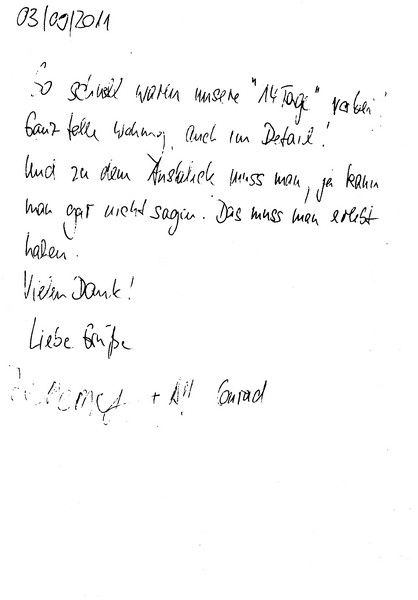 03/09/2011
So schnell waren unsere "14 Tage" vorbei!
Ganz tolle Wohnung, auch im Detail!
Und zu dem Ausblick muss man, ja kann
man gar nicht sagen. Das muss man erlebt
haben.
Vielen Dank!
Liebe Grüße
+ Conrad